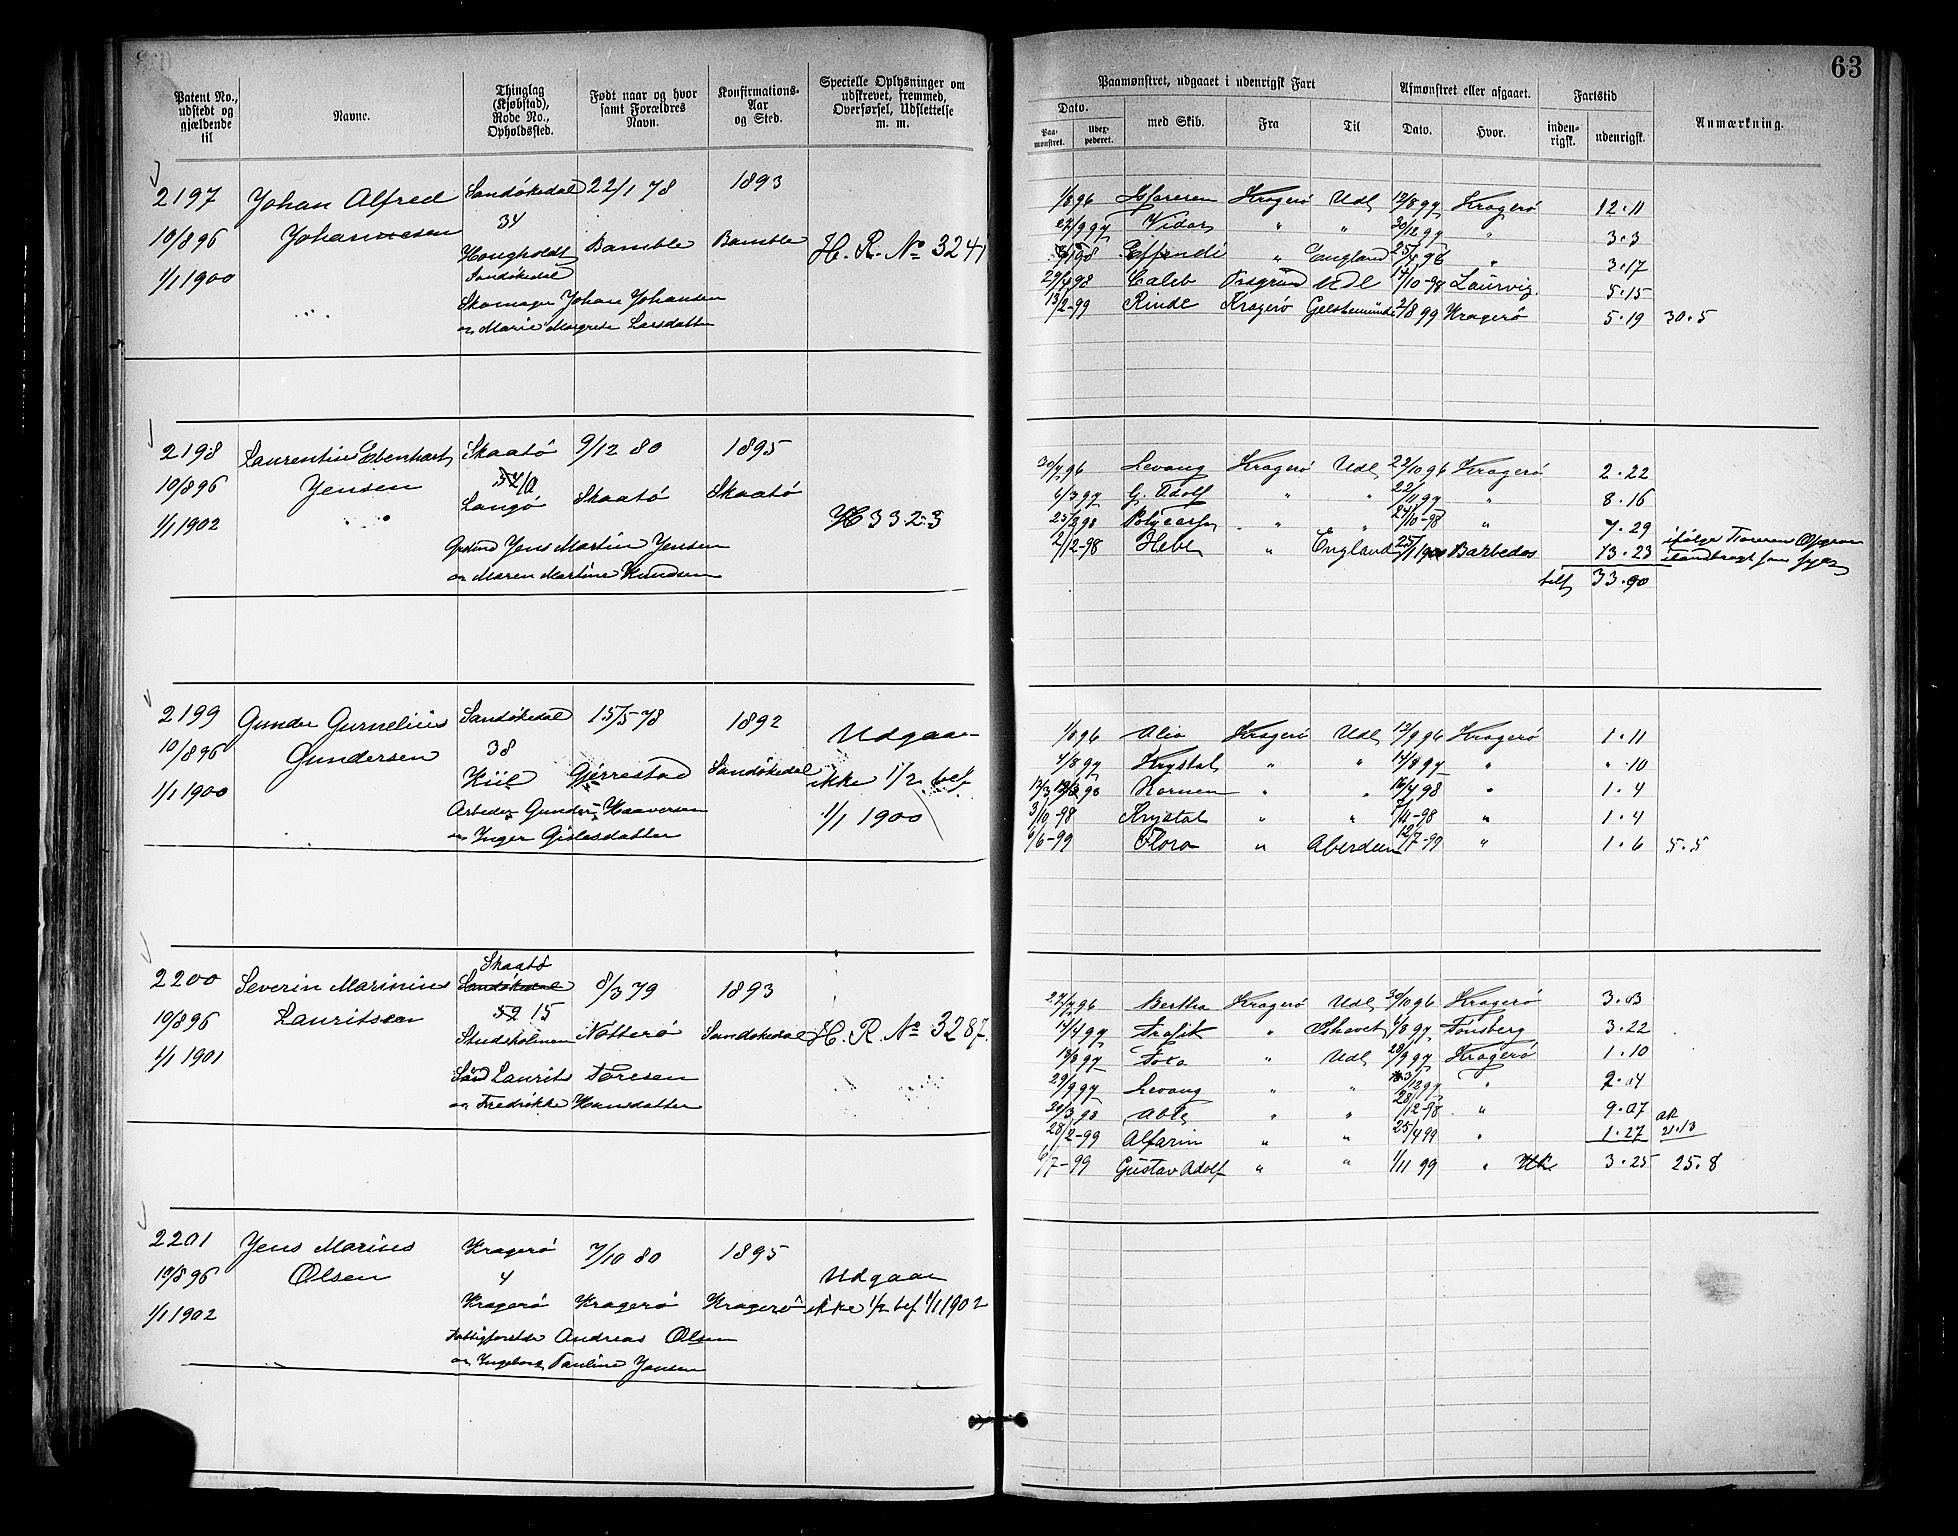 63
Patent No., udstedt og gjældende til
Navne.
Thinglag (Kjøbstad), Rode No., Opholdssted.
Født naar og hvor samt Forældres Navn.
Konfirmations-Aar og Sted.
Specielle Oplysninger om udskrevet, fremmed, Overførsel, Udslettelse m. m.
Paamønstret, udgaaet i udenrigsk Fart
Afmønstret eller afgaaet.
Fartstid
Anmærkning.
Dato.
Paa-mønstret.
Udex-pederet.
med Skib.
Fra
Til
Dato.
Hvor.
inden-rigsk.
udenrigsk.
2197 Johan Alfred Sandøkedal 22/1 78 1893
10/8 96 Johannesen 34 Bamble Bamble H. R. No 3241
1/1 1900 Houghholdt Sandøkedal
Skomager Johan Johansen
og Marie Margrete Larsdatter
1/8 96 Kragerø Udl 12/8 97 Kragerø 12.11
27/9 97 Vidar " " 30/12 97 " 3.3
98 Effendi " England 25/5 98 " 3.17
29/4 98 Caleb Porsgrund Udl 14/10-98 Laurvig 5.15
13/2-99 Rinde Kragerø 2/8 99 Kragerø 5.19 30.5
2198 Laurentius Ebenhart Skaatø 9/12 80 1895
10/8 96 Jensen Langø Skaatø Skaatø
1/1 1902 H 3323
Jens Martin Jensen
og Maren Martine Knudsen
30/7 96 Levang Kragerø Udl 22/10 96 Kragerø 2.22
6/3 97 G. Adolf " " 22/11 97 " 8.16
25/2 98 Polycarp " " 24/10-98 " 7.29
2/12-98 Hebe " England 25/1 1900 Barbados 13.23
33.90
2199 Gunder Gurnelius Sandøkedal 15/5 78 1892
10/8 96 Gundersen 38 Udgaar
1/1 1900 Kiil Gjerrestad Sandøkedal ikke 1/2 bef.
Arbeder Gunder Haaversen 1/1 1900
og Inger Gislesdatter
1/8 96 Kragerø Udl 12/9 96 Kragerø 1.11
4/8 97 Krystal " " 14/8 97 " ".10
13/3 98 Kornmo " " 16/4 98 " 1.4
3/10-98 Krystal " " 7/11-98 " 1.4
6/6-99 Flora " Aberdeen 12/7-99 " 1.6 5.5
2200 Severin Marinius Skaatø 8/3 79 1893
Sandøkedal
10/8 96 Lauritsen 15
1/1 1901 Studsholmen Nøtterø Sandøkedal H. R. No 3287.
Laurits Toresen
og Fredrikke Hansdatter
27/7 96 Bertha Kragerø Udl 30/10 96 Kragerø 3.03
14/4 97 Trafik " Ishavet 6/8 97 Tønsberg 3.22
18/8 97 " Udl 28/9 97 Kragerø 1.10
29/9 97 Levang " " 3/12 97 " 2.04
20/3 98 Able " " 28/12-98 " 9.07
28/2-99 Alfarin " " 25/4 99 " 1.27 21.13
6/7-99 Gustav Adolf " " 1/11 99 " 3.25 25.8
2201 Jens Marius Kragerø 7/10 80 1895
10/8 96 Olsen 4 Udgaar
1/1 1902 Kragerø Kragerø Kragerø ikke 1/2 bef 1/1 1902
Andreas Olsen
og Ingeborg Pauline Jensen